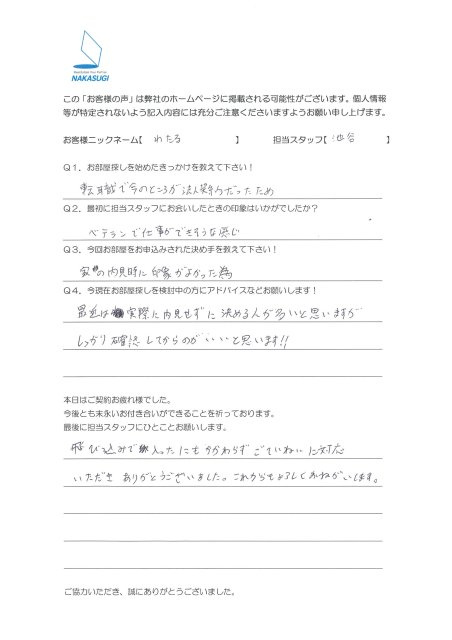 NAKASUGI
この「お客様の声」は弊社のホームページに掲載される可能性がございます。個人情報
等が特定されないよう記入内容には充分ご注意くださいますようお願い申し上げます。
お客様ニックネーム【 わたる 】 担当スタッフ【 池谷 】
Q1. お部屋探しを始めたきっかけを教えて下さい!
転職で今のところが法人契約だったため
Q2. 最初に担当スタッフにお会いしたときの印象はいかがでしたか?
ベテランで仕事ができそうな感じ
Q3. 今回お部屋をお申込みされた決め手を教えて下さい!
家の内見時に印象がよかった為
Q4. 今現在お部屋探しを検討中の方にアドバイスなどお願いします!
最近は実際に内見せずに決める人が多いと思いますが
しっかり確認してからのがいいと思います!!
本日はご契約お疲れ様でした。
今後とも末永いお付き合いができることを祈っております。
最後に担当スタッフにひとことお願いします。
飛び込みで入ったにもかかわらずごていねいに対応
いただき ありがとうございました。これからもよろしくおねがいします。
ご協力いただき、誠にありがとうございました。